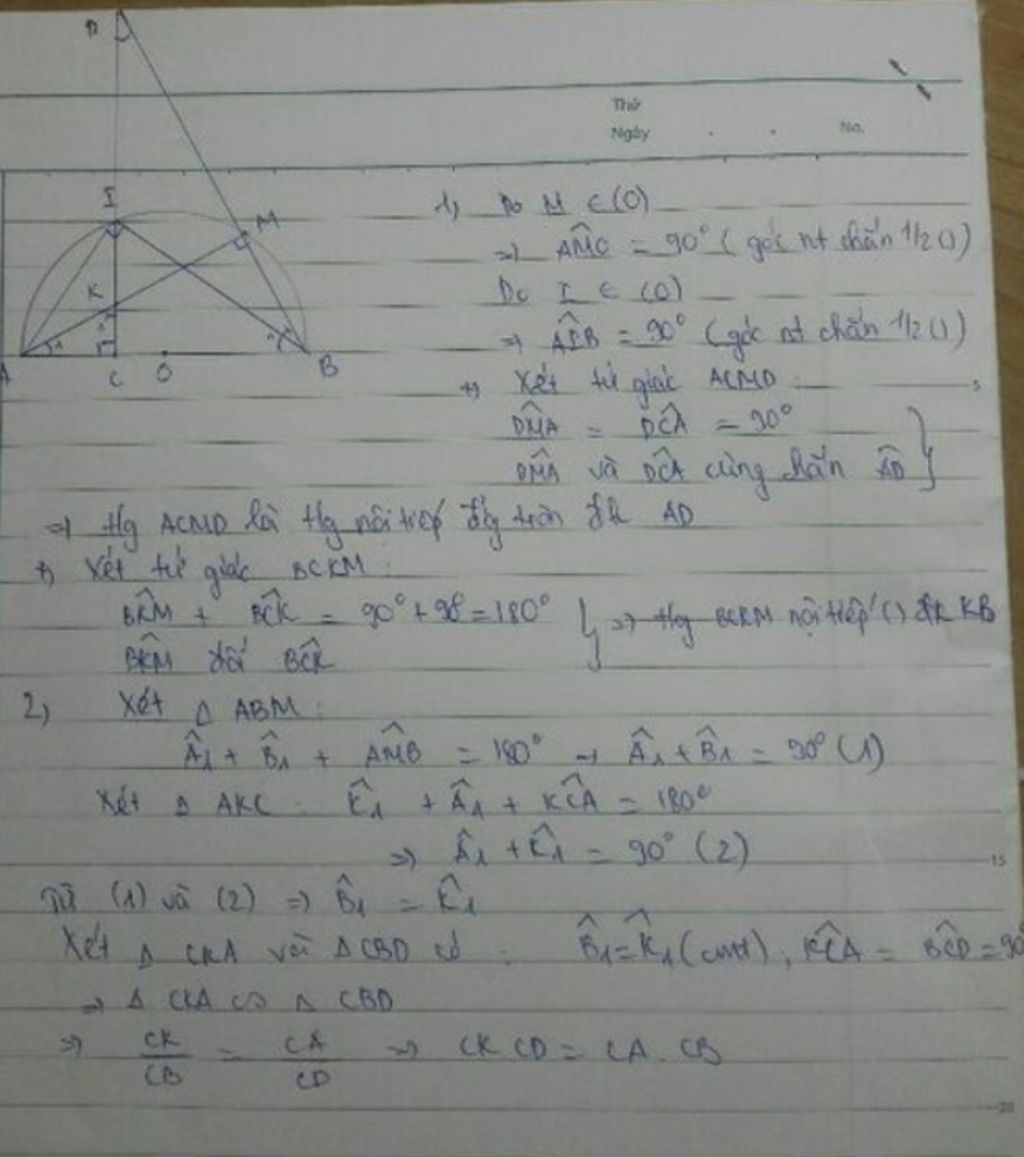 D
Thứ
Ngày
No.
I
M
K
A
C
O
B
1) Do M ∈ (O)
=> AMO = 90° ( góc nt chắn 1/2 ())
Do I ∈ (O)
=> AIB = 90° (góc nt chắn 1/2 ())
+) Xét tứ giác ACMD :
5
DMA = DCA = 90°
DMA và DCA cùng chắn AD }
=> tg ACMD là tg nội tiếp đg tròn đk AD
+) Xét tứ giác BCKM :
BKM + BCK = 90° + 90° = 180° } => tg BCKM nội tiếp () đk KB
BKM đối BCK
2) Xét Δ ABM :
Â₁ + B̂₁ + AMB = 180° → Â₁ + B̂₁ = 90° (1)
Xét Δ AKC : K̂₁ + Â₁ + KCA = 180°
=> Â₁ + K̂₁ = 90° (2)
15
Từ (1) và (2) => B̂₁ = K̂₁
Xét Δ CKA và Δ CBD có : B̂₁ = K̂₁ (cmt) ; KCA = BCD = 90°
=> Δ CKA ∽ Δ CBD
=> CK/CB = CA/CD => CK CD = CA . CB
20